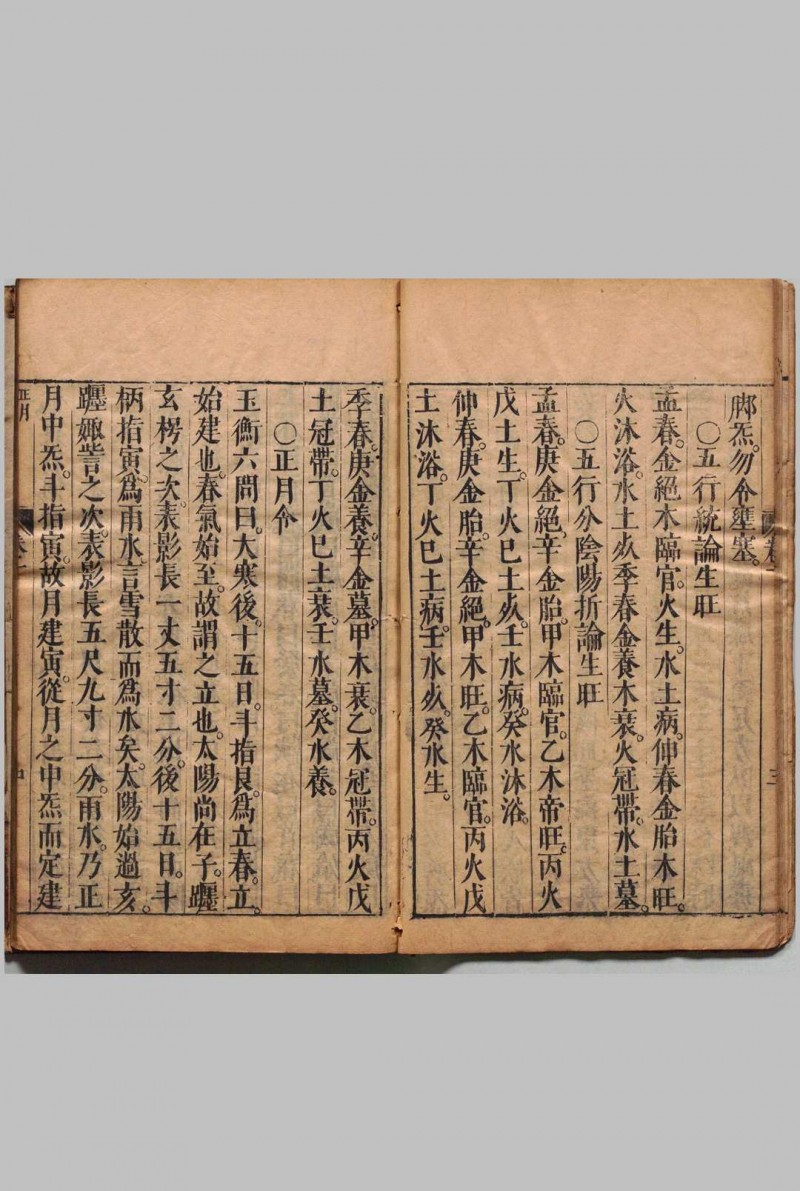 脚炁。勿令壅塞。
〇五行統論生旺
孟春。金絕木臨官。火生。水土病。仲春金胎木旺。
火沐浴。水土死季春金養木衰。火冠帶。水土墓。
〇五行分陰陽折論生旺
孟春。庚金絕。辛金胎。甲木臨官。乙木帝旺。丙火
戊土生。丁火巳土死。壬水病。癸水沐浴。
仲春。庚金胎。辛金絕。甲木旺。乙木臨官。丙火戊
土沐浴。丁火巳土病。壬水死。癸水生。
季春。庚金養。辛金墓。甲木衰。乙木冠帶。丙火戊
土冠帶。丁火巳土衰。壬水墓。癸水養。
〇正月令
玉衡六問曰。大寒後。十五日。斗指艮。為立春。立。
始建也。春氣始至。故謂之立也。太陽尚在子。躔
玄枵之次。表影長一丈五寸二分。後十五日。斗
柄指寅。為雨水。言雪散而為水矣。太陽始過亥。
躔娵訾之次。表影長五尺九寸二分。雨水。乃正
月中炁。斗指寅。故月建寅。從月之中炁而定建
正月